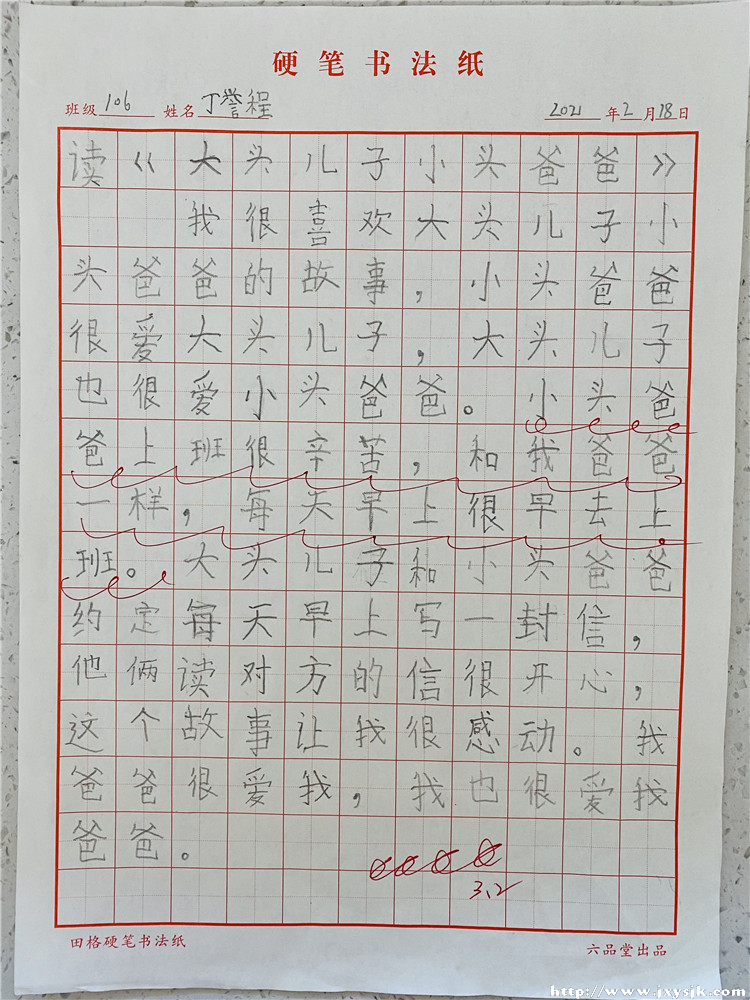 硬笔书法纸
班级 106 姓名 丁誉程 2021年2月18日
读《大头儿子小头爸爸》
我很喜欢大头儿子小
头爸爸的故事，小头爸爸
很爱大头儿子，大头儿子
也很爱小头爸爸。小头爸
爸上班很辛苦，和我爸爸
一样，每天早上很早去上
班。大头儿子和小头爸爸
约定每天早上写一封信，
他俩读对方的信很开心，
这个故事让我很感动。我
爸爸很爱我，我也很爱我
爸爸。
3.2
田格硬笔书法纸 六品堂出品
http://www.jxysjk.com